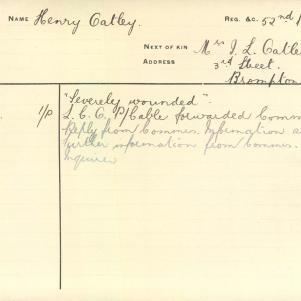 NAME Henry Oatley. REG. &C. 52nd
NEXT OF KIN Mrs J. L. Oatle
ADDRESS 3rd Street.
Brompton
"Severely wounded".
1/p L.C.C. P/Cable forwarded Comm
Reply from Commrs. Information a
further information from Commrs.
Inquirer